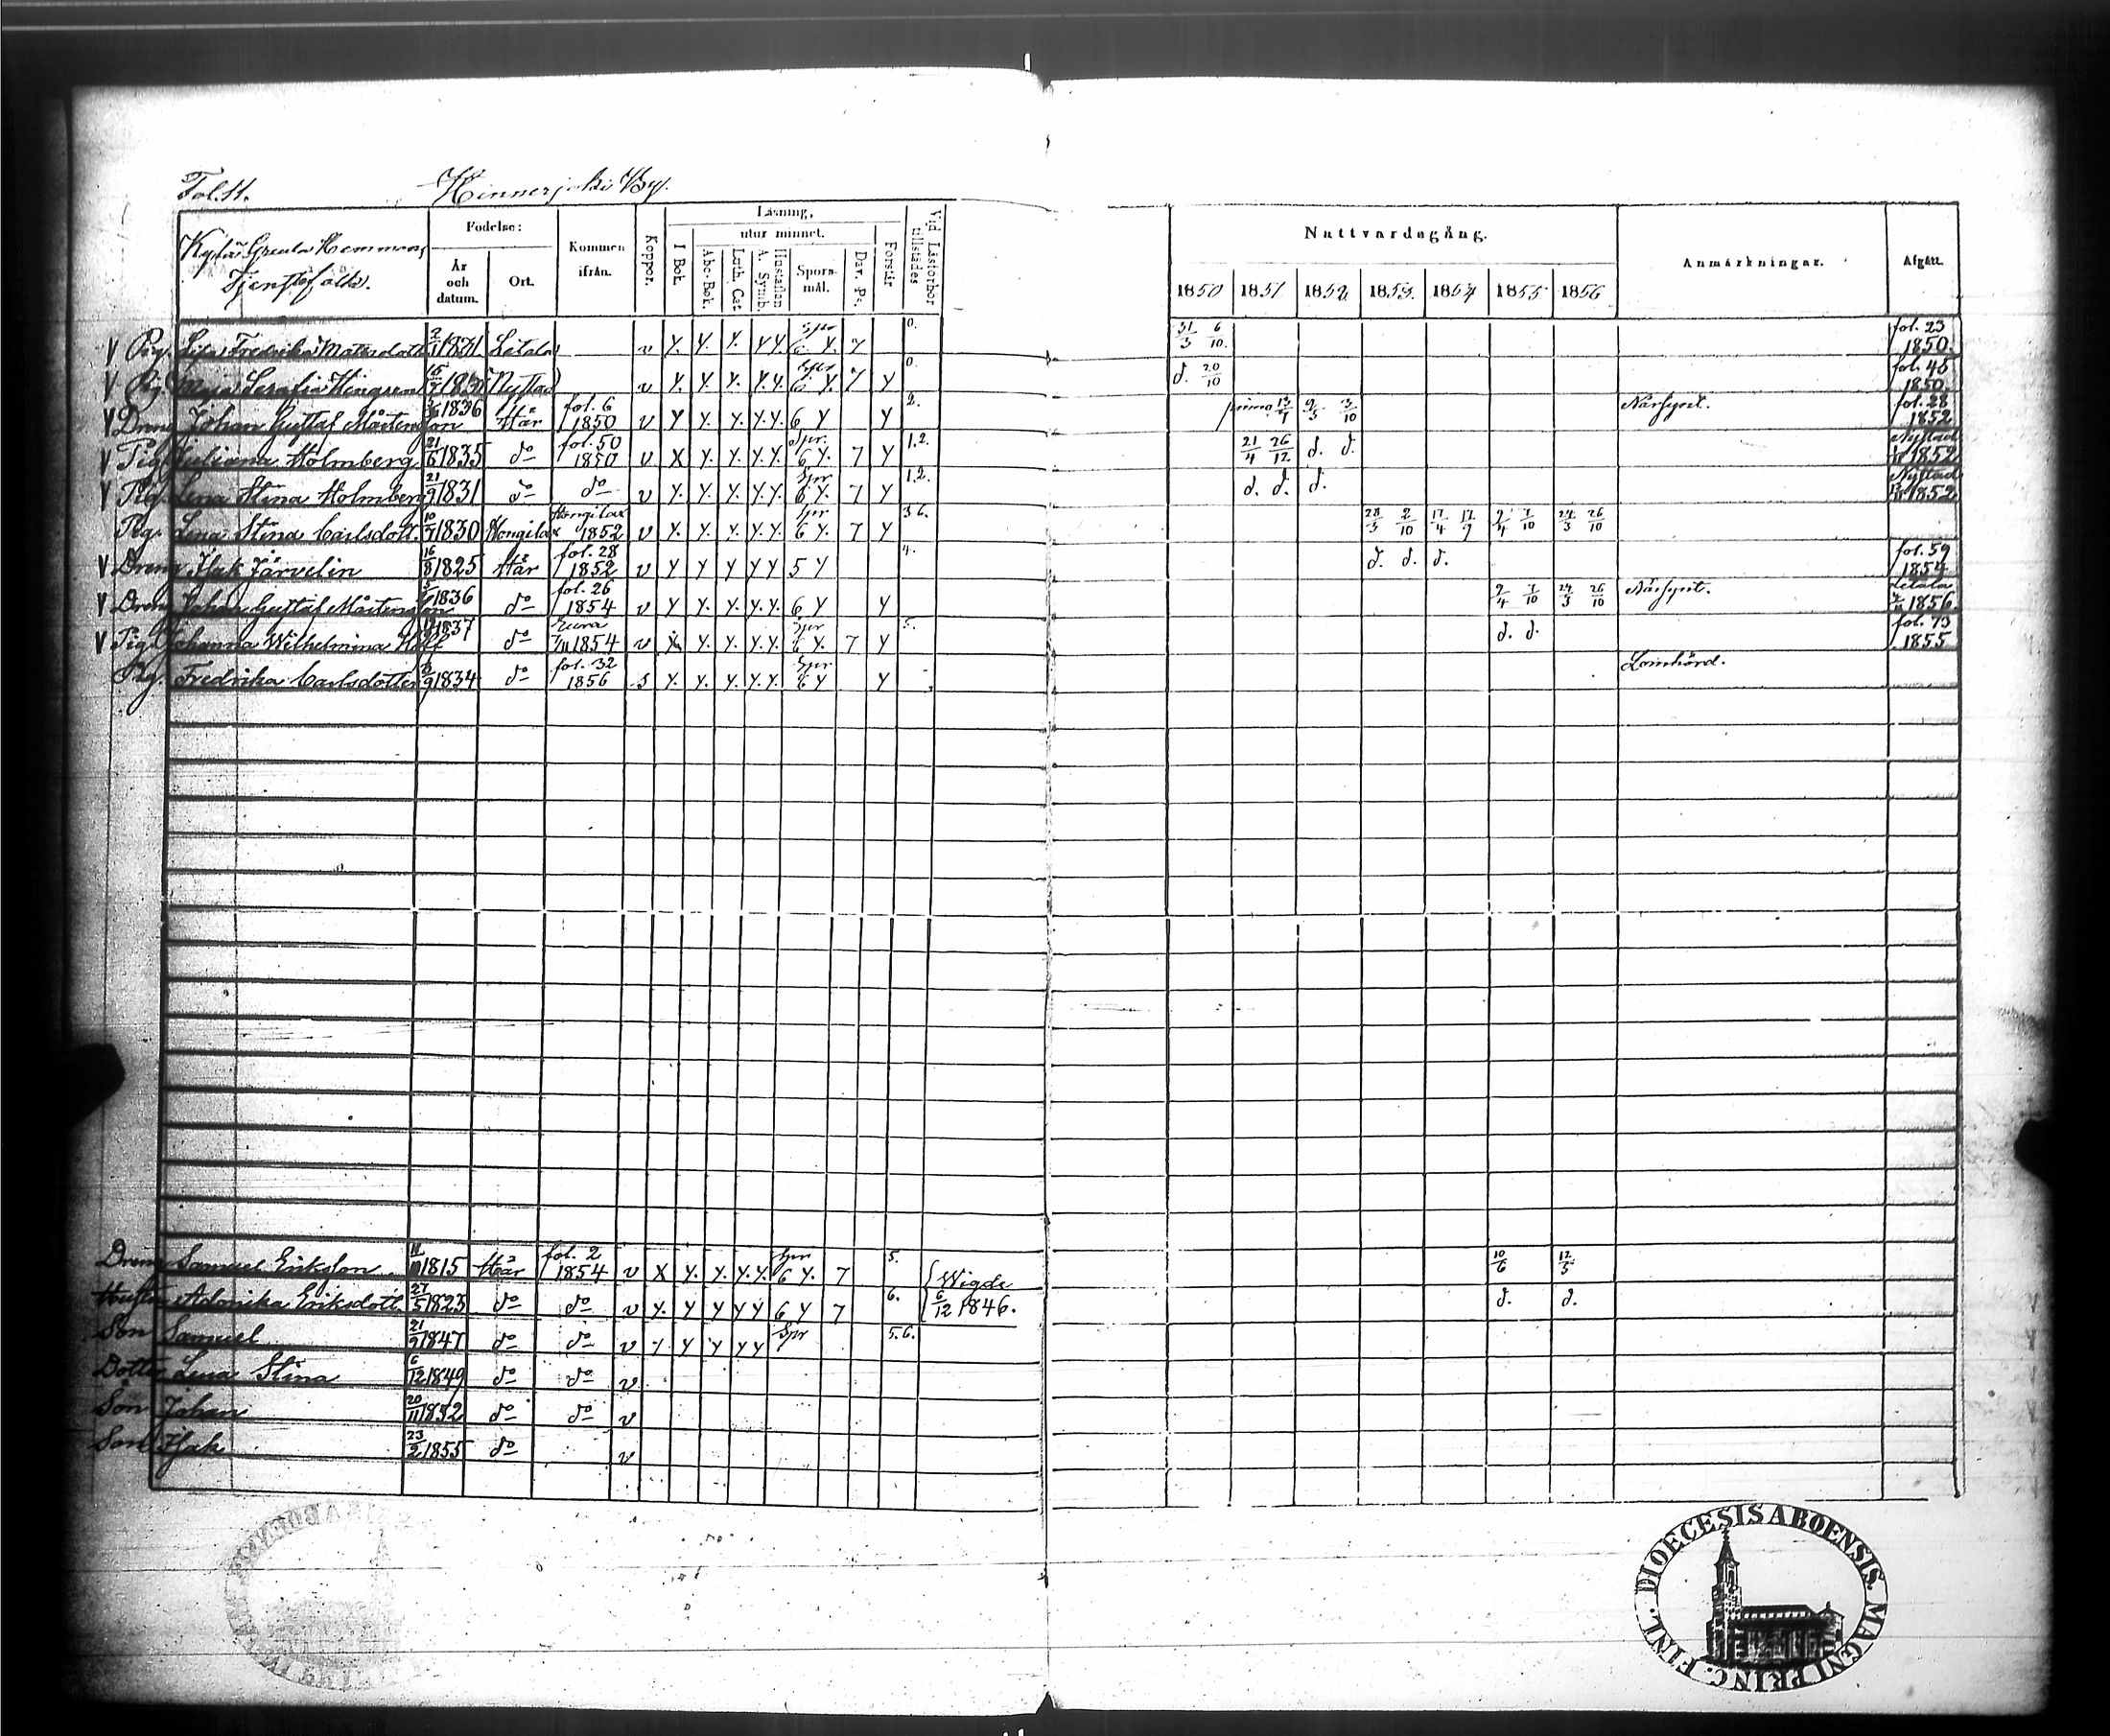 Fol. 11. Hinnerjoki By.
Kylä Greula Hemmans
Tjenstefolk.
Födelse:
År och datum.
Ort.
Kommen ifrån.
Koppor.
Läsning,
utur minnet.
I Bok.
Abc-Bok.
Luth. Cat.
A. Symb.
Hustaflan
Sporsmål.
Dav. Ps.
Förstår
Vid Läsförhör tillstädes
Nattvardsgång.
1850 1851 1852 1853 1854 1855 1856
Anmärkningar.
Afgått.
V Pig. Lisa Fredrika Matsdott. 1831 Letala v Y. Y. Y. Y Y. Spr 6 Y. 7 0. 31/3 6/10. fol. 23 1850.
V Pig. Maja Serafia Nystad v Y. Y. Y. Y.Y. 6 Y. 7 Y 0. d. 20/10 fol. 48 1850.
V Dreng Johan Gustaf Mårtensson 1836 Här fol. 6 1850 v Y Y. Y. Y.Y. 6 Y Y 2. primo 13/7 9/5 3/10 Närsynt. fol. 28 1852
V Pig. Juliana Holmberg 21/6 1835 do fol. 50 1850 v X Y. Y. Y.Y. Spr. 6 Y. 7 Y 1.2. 21/4 26/12 d. d. Nystad 1852
V Pig. Lena Stina Holmberg 21/9 1831 do do v Y. Y. Y. Y.Y. Spr 6 Y. 7 Y 1.2. d. d. d. Nystad 1852
Pig. Lena Stina Carlsdott. 10/7 1830 Hongilax Hongilax 1852 v Y. Y. Y. Y.Y. Spr 6 Y. 7 Y 3 6. 28/3 2/10 17/4 17/9 9/4 7/10 24/3 26/10
V Dreng Isak Järvelin 16/8 1825 Här fol. 28 1852 v Y Y Y Y Y 5 Y 4. d. d. d. fol. 59 1854
V Dreng Johan Gustaf Mårtensson 1836 do fol. 26 1854 v Y Y. Y. Y.Y. 6 Y Y 9/4 7/10 24/3 26/10 Närsynt. Letala 1856
V Pig. Johanna Wilhelmina 1837 do Eura 1854 v X Y. Y. Y.Y. Spr 6 Y. 7 Y 5. d. d. fol. 73 1855
Pig. Fredrika Carlsdotter 1834 do fol. 32 1856 s Y. Y. Y. Y.Y. Spr 6 Y Y Lomhörd.
Dreng Samuel Eriksson 1815 Här fol. 2 1854 v X Y. Y. Y.Y. Spr 6 Y. 7 5. { Wigde 10/6 12/5
Hustru Adonika Eriksdott. 27/5 1823 do do v Y. Y Y Y Y 6 Y 7 6. 6/12 1846. d. d.
Son Samuel 21/9 1847 do do v Y Y Y Y Y Spr 5.6.
Dotter Lena Stina 6/12 1849 do do v
Son Johan 20/11 1852 do do v
Son Isak 23/2 1855 do v
DIOECESIS ABOENSIS. MAGNI PRINC. FINL.